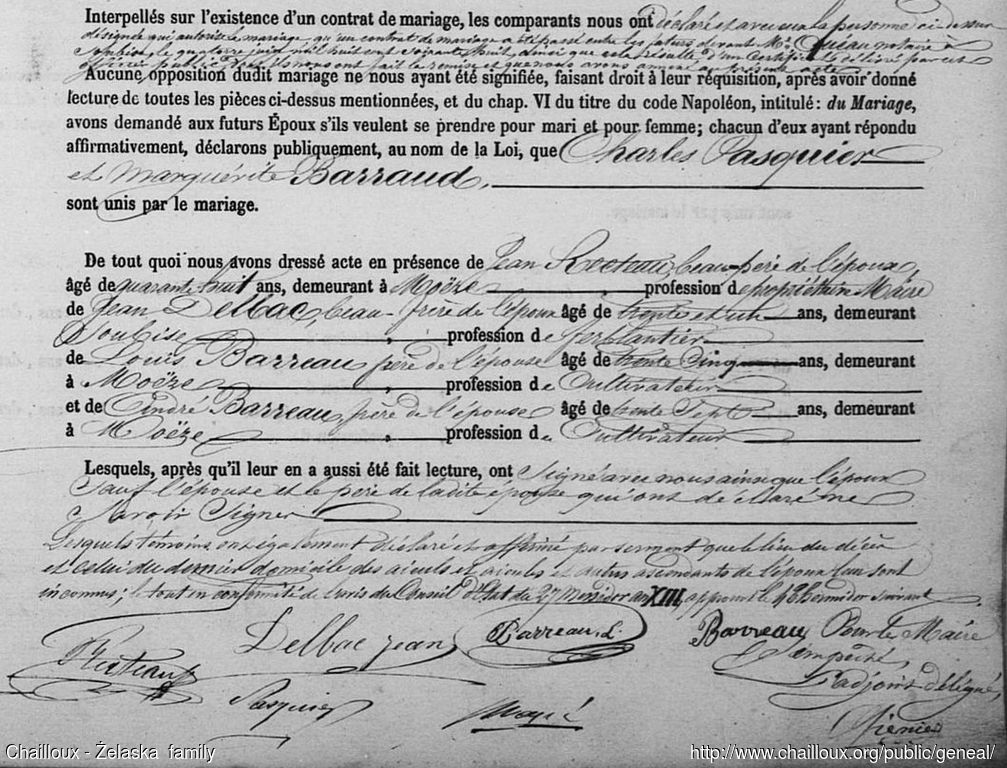 Interpellés sur l'existence d'un contrat de mariage, les comparants nous ont déclaré et avec eux la personne ci dessus
désignée qui autorise le mariage, qu'un contrat de mariage a été passé entre les futurs devant Me notaire à
Soubise, le quatorze juin mil huit cent soixante huit, ainsi que cela résulte d'un certificat délivré par cet
officier public
Aucune opposition dudit mariage ne nous ayant été signifiée, faisant droit à leur réquisition, après avoir donné
lecture de toutes les pièces ci-dessus mentionnées, et du chap. VI du titre du code Napoléon, intitulé : du Mariage,
avons demandé aux futurs Époux s'ils veulent se prendre pour mari et pour femme; chacun d'eux ayant répondu
affirmativement, déclarons publiquement, au nom de la Loi, que Charles Pasquier
et Marguérite Barraud,
sont unis par le mariage.
De tout quoi nous avons dressé acte en présence de Jean beau-père de l'époux,
âgé de quarante huit ans, demeurant à Moëze profession de propriétaire Maire
de Jean Delbac, beau-frère de l'époux âgé de trente et un ans, demeurant
Soubise, profession de ferblantier
de Louis Barreau frère de l'épouse âgé de trente cinq ans, demeurant
à Moëze profession de Cultivateur
et de André Barreau, frère de l'épouse âgé de trente sept ans, demeurant
à Moëze profession de Cultivateur
Lesquels, après qu'il leur en a aussi été fait lecture, ont signé avec nous ainsi que l'époux
Sauf l'épouse et le père de ladite épouse qui ont déclaré ne
Savoir Signer
Lesquels témoins ont également déclaré et affirmé par serment que le lieu du décès
et celui du dernier domicile des aïeuls et aïeules et autres ascendants de l'époux leur sont
inconnus; le tout en conformité de l'avis du Conseil d'Etat du 27 Messidor an XIII, approuvé le 4 thermidor suivant
Delbac jean
Barreau L.
Barreau Pour le Maire
empêché,
L'adjoint délégué,
Pasquier
Chailloux - Želaska family
http://www.chailloux.org/public/geneal/